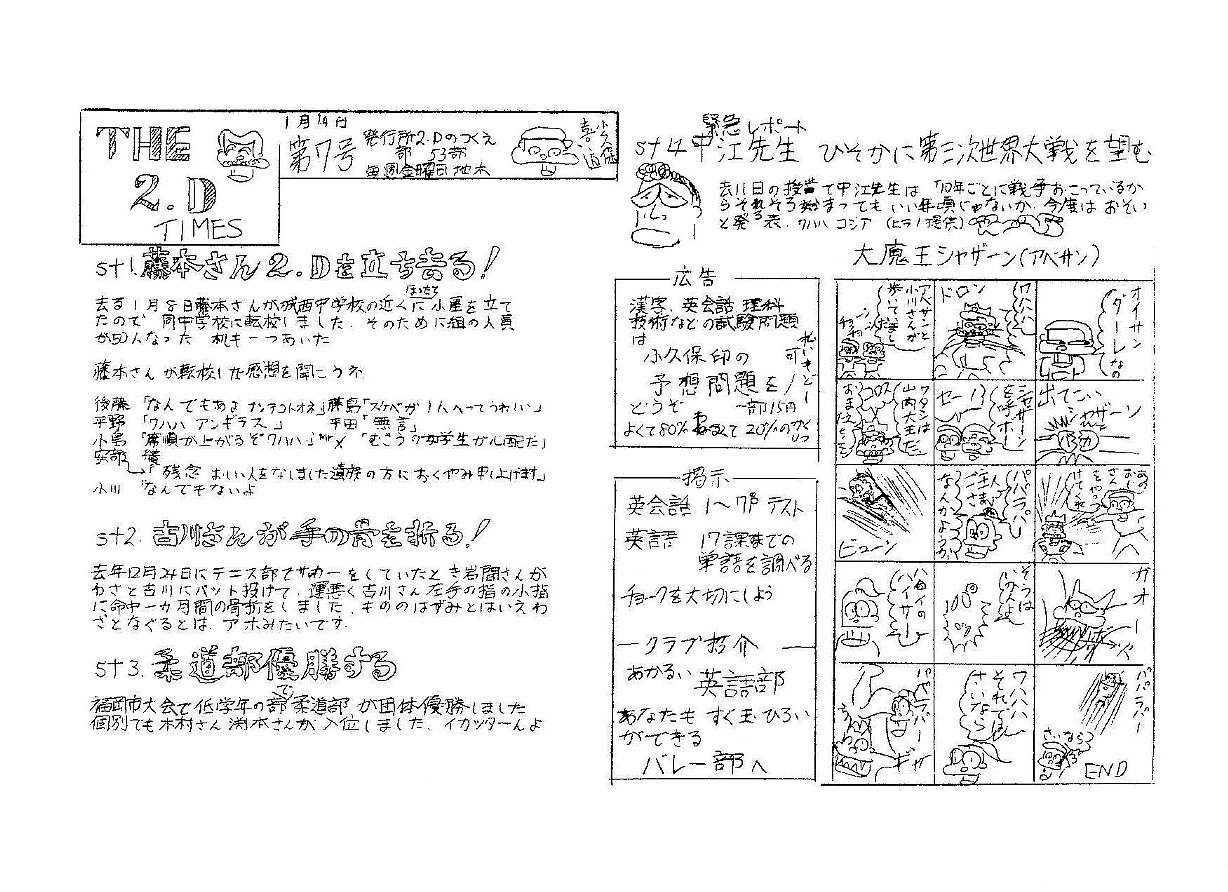 THE
2.D
TIMES
1月19日
第7号
発行所2.Dのつくえ
部 53部
毎週金曜日
st1. 藤本さん2.Dを立ち去る!
去る1月8日藤本さんが城西中学校の近くに小屋を立て
たので 同中学校に転校しました. そのために組の人員
が50人なった 机キーつあいた
藤本さんが転校した感想を聞こうネ
後藤「なんでもあるよ
平野「ワハハ アンギラス 」 平田「無言」
小島「席順が上がるぞワハハ」 Mr X 「むこうの女学生が心配だ」
安部 績
「残念 おしい人をなくしました遺族の方におくやみ申し上げます」
小川「なんでもないよ
st2. 古川さんが手の骨を折る!
去年12月24日にテニス部でサッカーをしていたとき岩間さんが
わざと古川にバット投げて. 運悪く古川さん左手の指の小指
に命中一か月間の骨折をしました. もののはずみとはいえわ
ざとなぐるとは アホみたいです.
st3. 柔道部優勝する
福岡市大会で低学年の部で柔道部が団体優勝しました
個別でも木村さん 渕本さんが入位しました. イカッターんよ
緊急レポート
st4 中江先生 ひそかに第三次世界大戦を望む
去11日の授業で中江先生は「10年ごとに戦争おこっているか
らそろそろ始まってもいい年頃じゃないか. 今度はおそい
と発表. ワハハ コシア (ヒラノ提供)
広告
漢字 英会話 理科
技術などの試験問題
は
小久保印の
予想問題を!
どうぞ 一部15円
よくて80% 20%の
掲示
英会話 1〜7課 テスト
英語 17課までの
単語を調べる
チョークを大切にしよう
ークラブ紹介ー
あかるい 英語部
あなたも すぐ玉ひろい
ができる
バレー部へ
大魔王シャザーン(アベサン)
オイサン
ダーレなの
ワハハハ
ドロン
アベサンと
小川さんが
歩いてると
出てこい
シャザーン
パパラパー
ご主人さま
なんかようか
ビューン
ガオー
そうはいかんよ
ハイのハイサー
パパラパー
ワハハハ
それではさいなら
パパラパー
さいなら
END